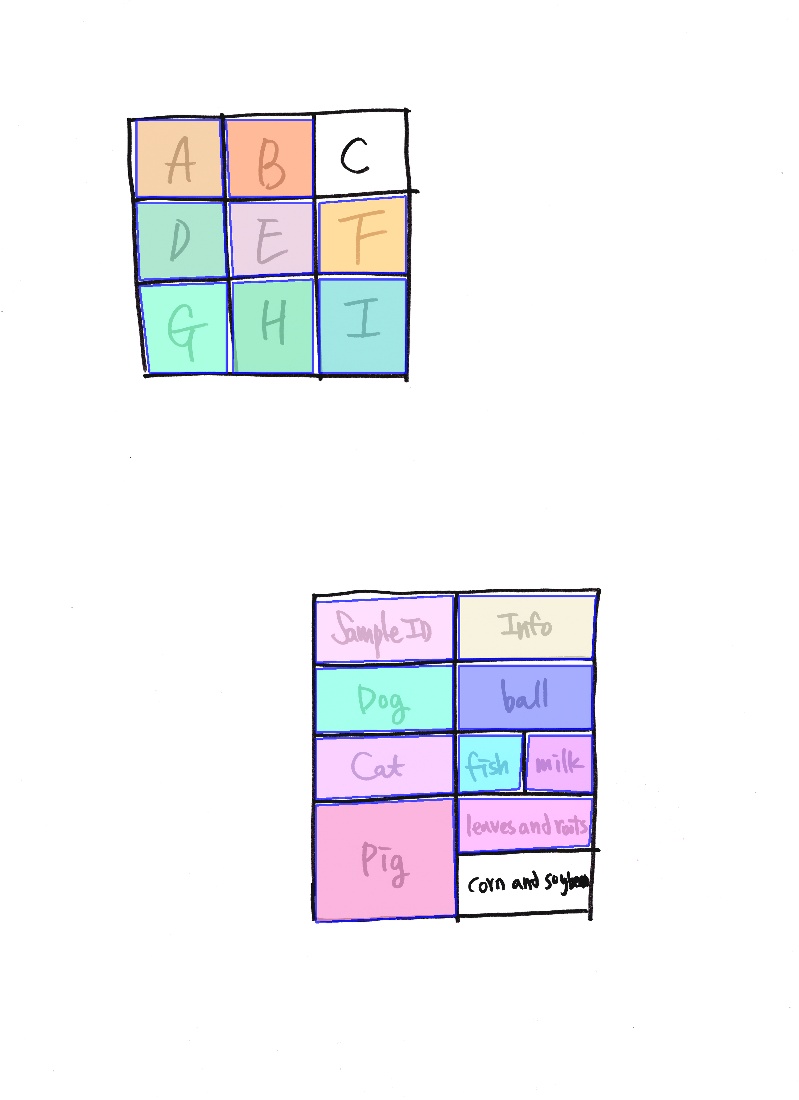 A B C
D E F
G H I
Sample ID Info
Dog ball
Cat fish milk
Pig leaves and roots
corn and soybean